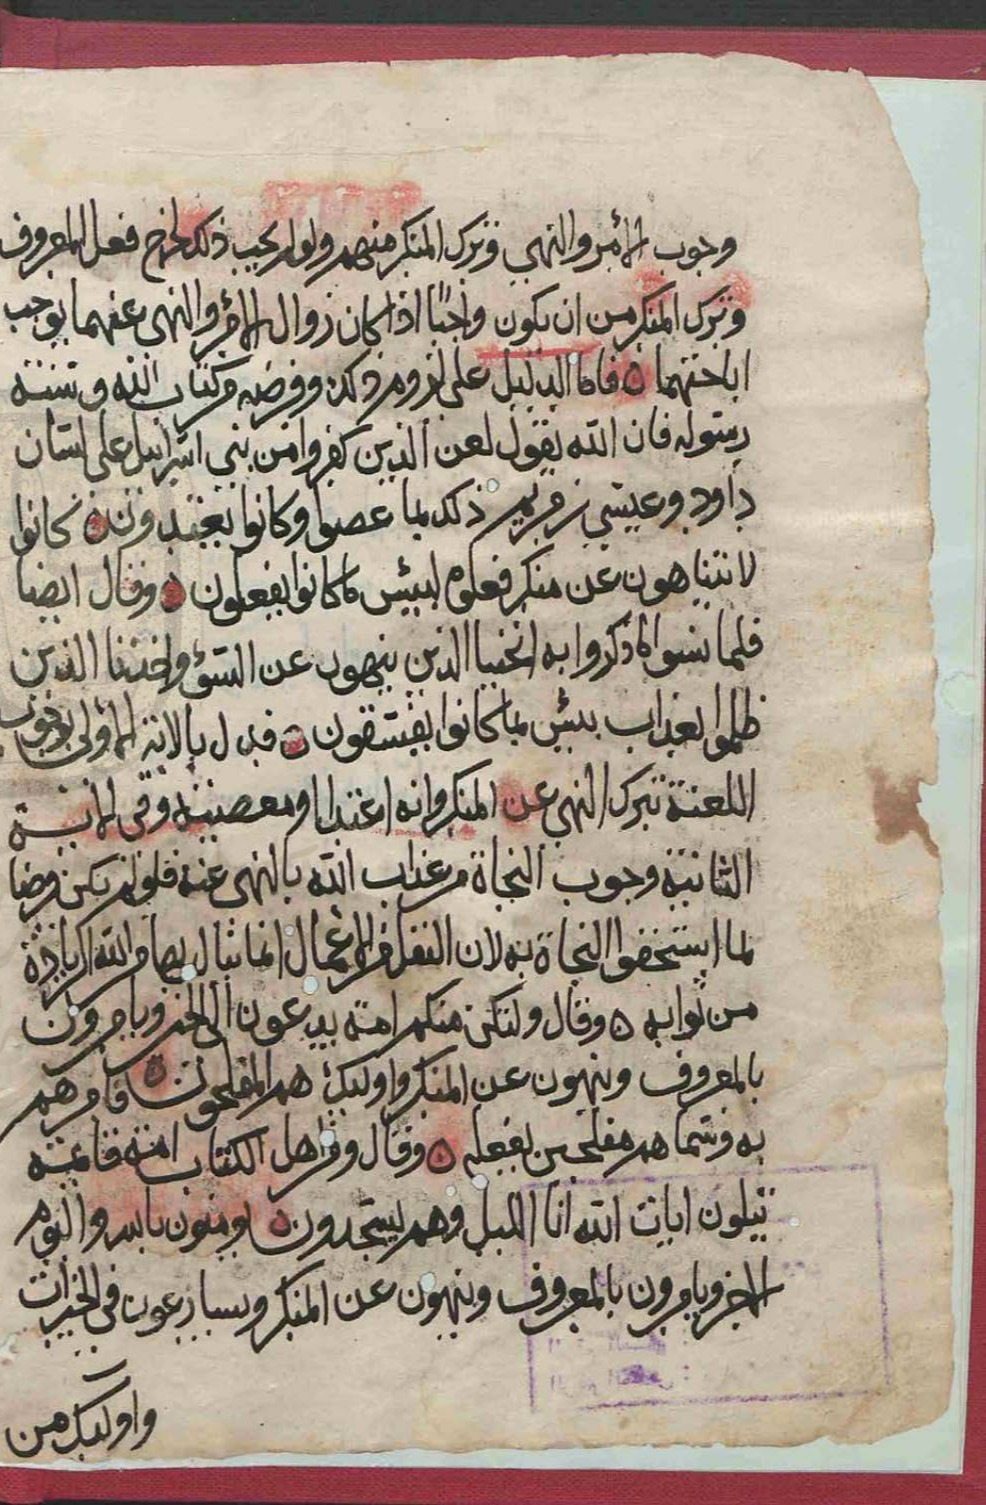 وجوب الأمر والنهي وترك المنكر منهم ولو لم يجب ذلك لخرج فعل المعروف
وترك المنكر من ان يكون واجبًا اذا كان زوال الأمر والنهى عنهما يوجب
اباحتهما ه فاما الدليل على لزوم ذلك وفرضه من كتاب الله وسنة
رسوله فان الله يقول لعن الذين كفروا من بني اسرائيل على لسان
داود وعيسى بن مريم ذلك بما عصوا وكانوا يعتدون ه كانوا
لا يتناهون عن منكر فعلوه لبئس ما كانوا يفعلون ه وقال ايضا
فلما نسوا ما ذكروا به انجينا الذين ينهون عن السوء واخذنا الذين
ظلموا بعذاب بئيس بما كانوا يفسقون ه فدل بالاية الأولى بوجوب
اللعنة بترك النهي عن المنكر وانه اعتدا ومعصية وفى الاية
الثانية وجوب النجاة من عذاب الله بالنهى عنه فلو لم يكن فرضا
لما استحقوا النجاة به لان النفل من الأعمال انما ينال بها من الله الزيادة
من ثوابه ه وقال ولتكن منكم امة يدعون الى الخير ويامرون
بالمعروف وينهون عن المنكر واوليك هم المفلحون ه فامرهم
به وسماهم مفلحين بفعله ه وقال من اهل الكتاب امة قائمة
يتلون ايات الله انا الليل وهم يسجدون ه يومنون بالله واليوم
الاخر ويامرون بالمعروف وينهون عن المنكر ويسارعون فى الخيرات
واوليك من